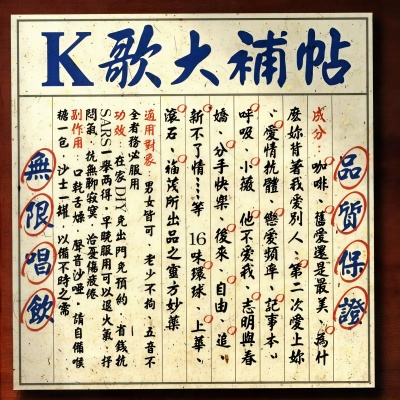 K歌大補帖
品質保證
成分:咖啡、舊愛還是最美、為什
麼妳背著我愛別人、第二次愛上妳
、愛情抗體、戀愛頻率、記事本、
呼吸、小薇、他不愛我、志明與春
嬌、分手快樂、後來、自由、追、
新不了情…等 16味環球、上華、
滾石、福茂所出品之靈方妙藥
適用對象:男女皆可、老少不拘、五音不
全者務必服用
功效:在家DIY免出門免預約、省錢抗
SARS一舉兩得、早晚服用可以退火氣、抒
悶氣、抗無聊寂寞、治憂傷疲倦
副作用:口乾舌燥、聲音沙啞、請自備喉
糖一包、沙士一罐、以備不時之需
無限唱飲